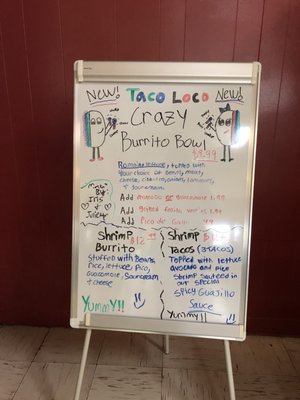 New! Taco Loco New!
Crazy
Burrito Bowl
$9.99
Romaine lettuce, topped with
your choice of beans, meat,
cheese, cilantro, onions, tomatoes,
& sour cream.
Add avocado or guacamole 1.99
Add grilled fajita veggies 1.99
Add Pico de Gallo
Made
By:
Iris
&
Shrimp
Burrito
$12.99
Stuffed with Beans,
Rice, lettuce, Pico,
Guacamole, Sourcream
+ cheese
Yummy!!
Shrimp
Tacos (3 tacos)
Topped with lettuce
avocado and Rice
Shrimp sauteed in
our special
Spicy Guajillo
Sauce
Yummy!!